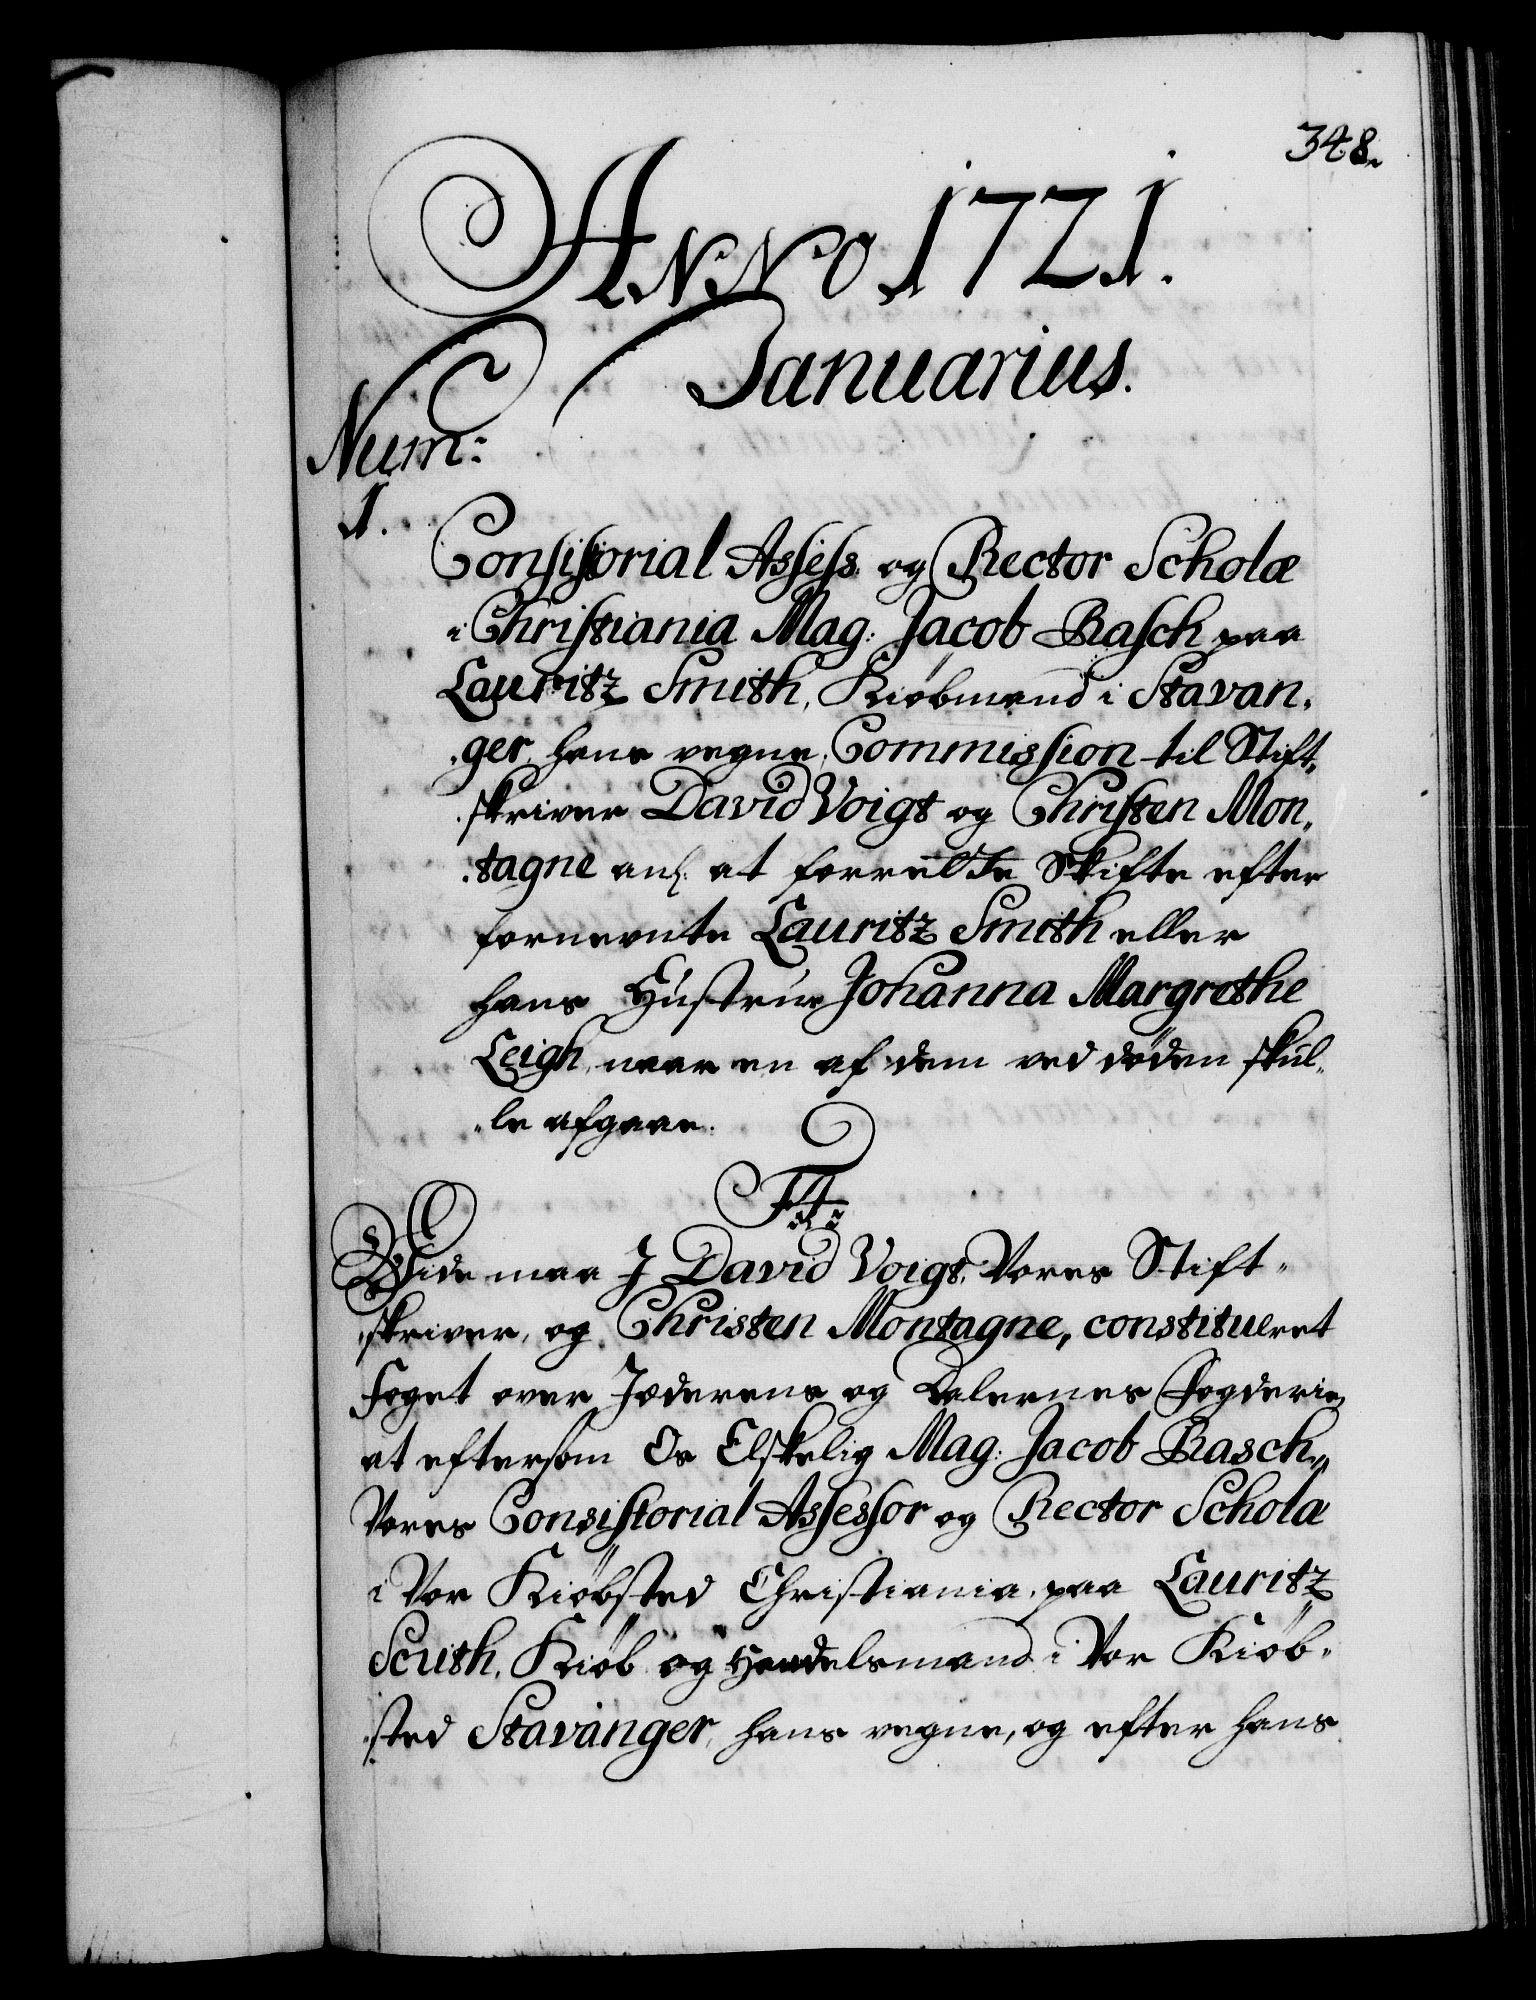 348.
Anno 1721.
Januarius.
Num:
1.
Consistorial Assess: og Rector Scholæ
i Christiania Mag: Jacob Rasch paa
Lauritz Smith, Kiøbmand i Stavan¸
¸ger, hans vegne, Commission til Stift¸
¸skriver David Voigt og Christen Mon¸
¸tagne anl: at forrette Skifte efter
fornevnte Lauritz Smith eller
hans Hustrue Johanna Margrethe
Leigh, naar en af dem ved døden skul¸
¸le afgaae.
F 4
Vide maa J David Voigt, Vores Stift¸
¸skriver, og Christen Montagne, constitueret
Foget over Jæderens og Dalernes Fogderie,
at eftersom Os Elskelig Mag: Jacob Rasch,
Vores Consistorial Assessor og Rector Scholæ
i Vor Kiøbsted Christiania, paa Lauritz
Scuith, Kiøb og Handelsmand i Vor Kiøb¸
¸sted Stavanger, hans vegne, og efter hans